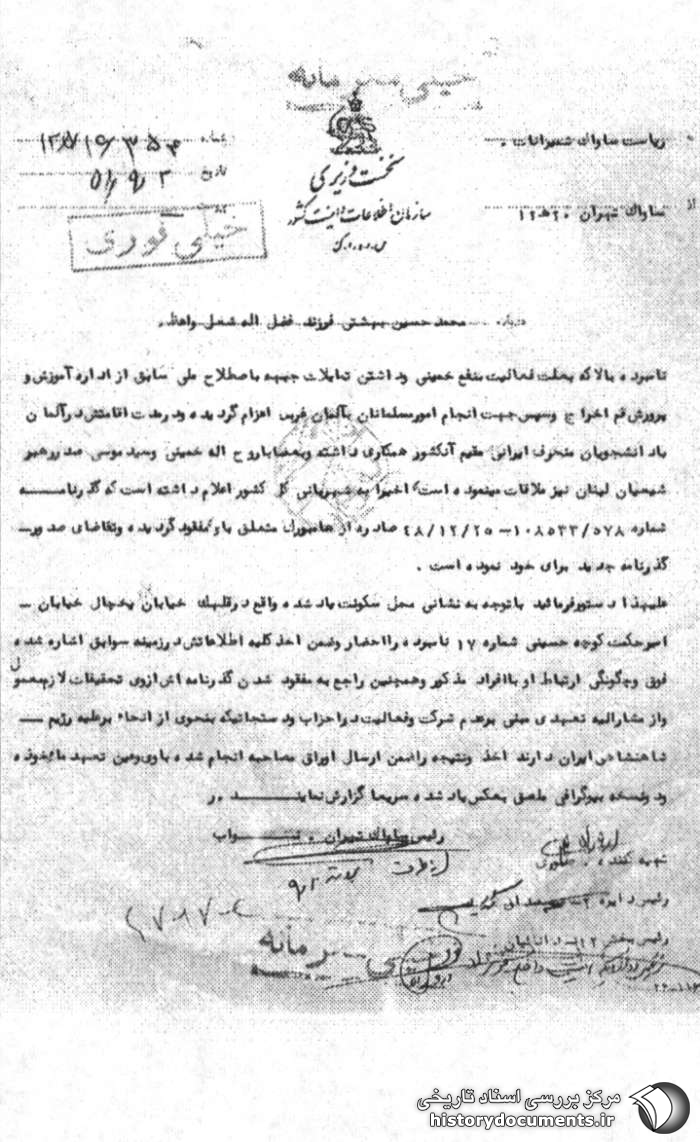 خیلی محرمانه
ریاست ساواک شمیرانات .
شماره
تاریخ ۵۱/۹/۲
از ساواک تهران ۲۰ هـ ۱۲
نخست وزیری
سازمان اطلاعات و امنیت کشور
س.ا.و.ا.ک
خیلی فوری
درباره محمد حسین بهشتی فرزند فضل اله شغل واعظ.
نامبرده بالا که بعلت فعالیت بنفع خمینی و داشتن تمایلات جبهه باصطلاح ملی سابق از اداره آموزش و
پرورش قم اخراج و سپس جهت انجام امور مسلمانان بآلمان غربی اعزام گردیده و در مدت اقامتش در آلمان
با دانشجویان منحرف ایرانی مقیم آنکشور همکاری داشته و بعضا با روح اله خمینی و سید موسی صدر رهبر
شیعیان لبنان نیز ملاقات مینموده است اخیرا به شهربانی کل کشور اعلام داشته است که گذرنامه
شماره ۱۰۸۵۳۳/۵۷۸ - ۴۸/۱۲/۲۵ صادره از هامبورک متعلق باو مفقود گردیده و تقاضای صدور
گذرنامه جدید برای خود نموده است .
علیهذا دستور فرمائید با توجه به نشانی محل سکونت یاد شده واقع در قلهک خیابان یخچال خیابان
امیر حکمت کوچه حسینی شماره ۱۷ نامبرده را احضار و ضمن اخذ کلیه اطلاعاتش در زمینه سوابق اشاره شده
فوق و چگونگی ارتباط او با افراد مذکور و همچنین راجع به مفقود شدن گذرنامه اش از وی تحقیقات لازم معمول
و از مشارالیه تعهدی مبنی بر عدم شرکت و فعالیت در احزاب و دستجاتیکه بنحوی از انحاء بر علیه رژیم
شاهنشاهی ایران دارند اخذ و نتیجه را ضمن ارسال اوراق مصاحبه انجام شده با وی و عین تعهد ماخوذه
و دو نسخه بیوگرافی ملصق بعکس یاد شده سریعا گزارش نمایند . ر
رئیس ساواک تهران . نواب
از طرف
تهیه کننده .
رئیس دایره
رئیس بخش ۱۲ - دانائیان
خیلی محرمانه
مرکز بررسی اسناد تاریخی
historydocuments.ir